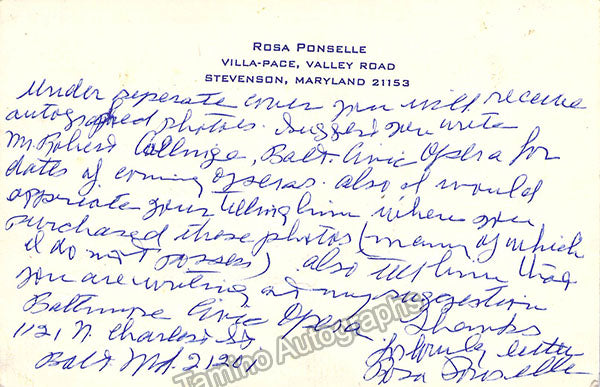 ROSA PONSELLE
VILLA-PACE, VALLEY ROAD
STEVENSON, MARYLAND 21153
Under seperate cover you will receive
autographed photos. Suggest you write
Mr. Robert Collinge, Balt. Civic Opera for
dates of coming operas. also I would
appreciate your telling him where you
purchased these photos (many of which
I do not posses) also tell him that
you are writing at my suggestion
Baltimore Civic Opera Thanks
1121 N Charles St
Balt Md. 21201
Rosa Ponselle
Tamino Autographs